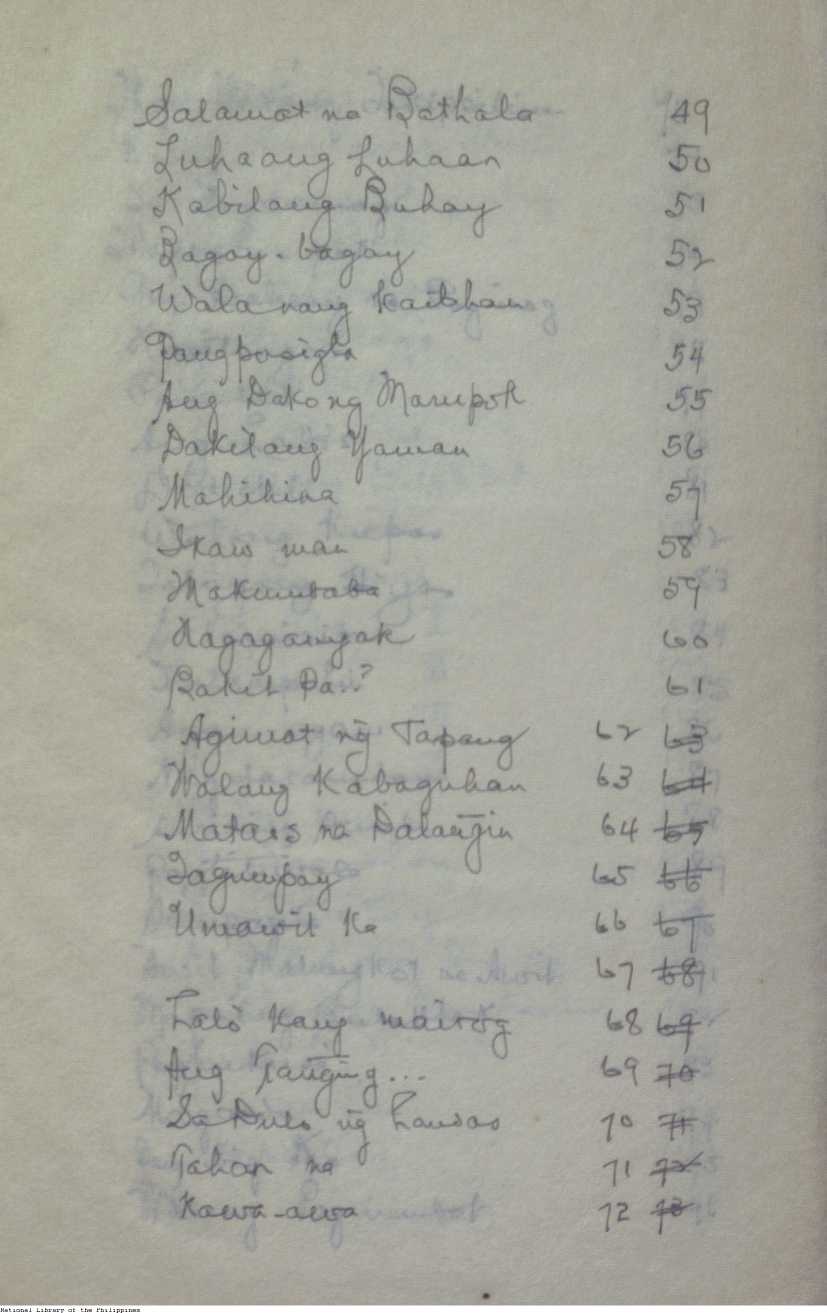 Salamat na Bathala 49
Luhaang Luhaan 50
Kabilang Buhay 51
Bagay-bagay 52
Wala nang Kaibhan 53
Pangpasigla 54
Ang Dako ng Marupok 55
Dakilang Yaman 56
Mahihina 57
Ikaw man 58
Makumbaba 59
Nagaganyak 60
Bakit Pa..? 61
Agimat ng̃ Tapang 62 63
Walang Kabaguhan 63 64
Mataos na Dalang̃in 64 65
Tagumpay 65 66
Umawit Ka 66 67
67 68
Lalò kang mairog 68 69
Ang Tang̃ing... 69 70
Sa Dulo ng̃ Landas 70 71
Tahan na 71 72
Kawa-awa 72 73
National Library of the Philippines